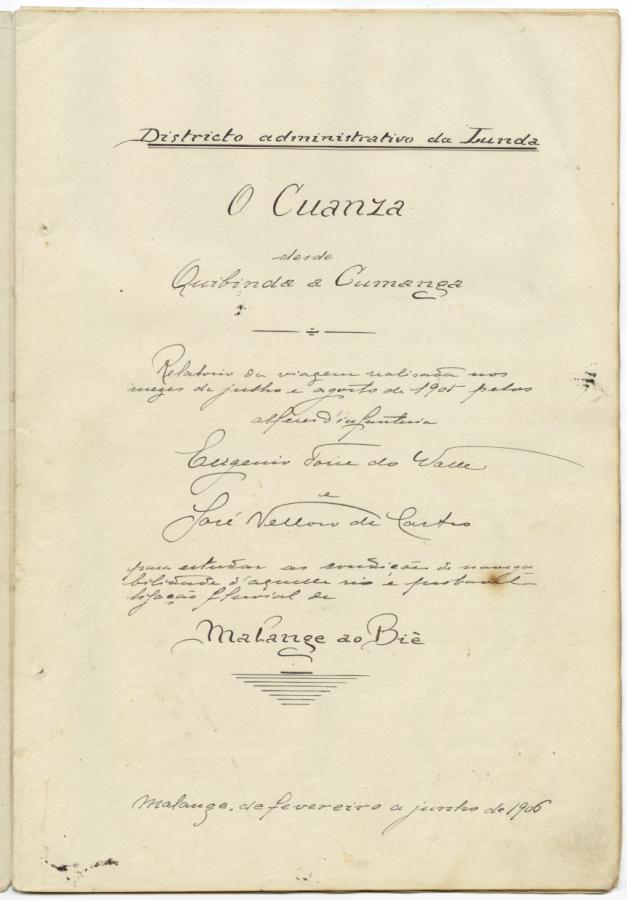 Districto administrativo da Lunda
O Cuanza
desde
Quibinda a Cumanga
Relatorio da viagem realisada nos
mezes de julho e agosto de 1905 pelos
alferes d'infantaria
Eugenio Torre do Valle
e
José Velloso de Castro
para estudar as condições de navega
bilidade d'aquelle rio e provavel
ligação fluvial de
Malange ao Biè
Malange, de fevereiro a junho de 1906